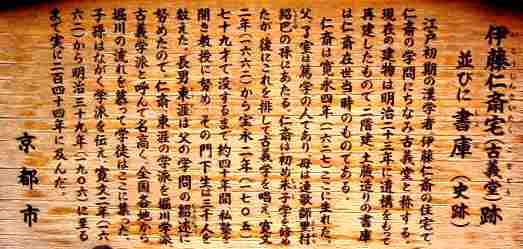 伊藤仁斎宅(古義堂)跡
並びに書庫(史跡)
江戸初期の漢学者伊藤仁斎の住宅で
仁斎の学問にちなみ古義堂と称する。
現在の建物は明治二十三年に遺構をもて
再建したもので、二階建、土蔵造りの書庫
は仁斎在世当時のものである。
仁斎は寛永四年(一六二七)ここに生れた。
父了室は篤学の人であり、母は連歌師里村
紹巴の孫にあたる。仁斎は初め朱子学を修め
たが後にこれを排して古義学を唱え、寛文
二年(一六六二)から宝永二年(一七〇五)
七十九才で没するまで約四十年間私塾を
開き教授に努め、その門下生は三千人を
数えた。長男東涯は父の学問の紹述に
努めたので、仁斎・東涯の学派を堀川学派、
古義学派と呼んで名高く、全国各地から
堀川の流れを慕って学徒はここに集った。
子孫はながく学派を伝え、寛文二年(一六
六二)から明治三十九年(一九〇六)に至る
まで実に二百四十四年に及んだ。
京都市